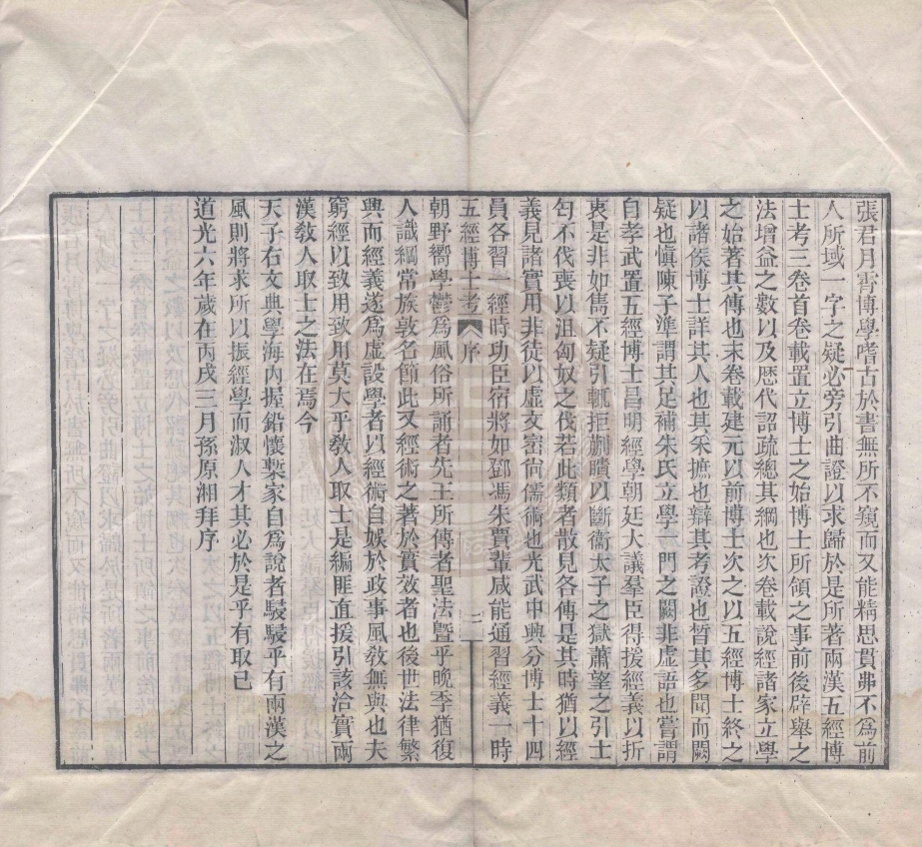 張君月霄博學嗜古於書無所不窺而又能精思貫弗不為前
人所域一字之疑必旁引曲證以求歸於是所著兩漢五經博
士考三卷首卷載置立博士之始博士所領之事前後辟舉之
法增益之數以及歷代詔疏總其綱也次卷載說經諸家立學
之始著其傳也末卷載建元以前博士次之以五經博士終之
以諸侯博士詳其人也其采摭也辯其考證也晳其多聞而闕
疑也愼陳子準謂其足補朱氏立學一門之闕非虛語也嘗謂
自孝武置五經博士昌明經學朝廷大議羣臣得援經義以折
衷是非如雋不疑引輒拒蒯聵以斷衞太子之獄蕭望之引士
匄不伐喪以沮匈奴之伐若此類者散見各傳是其時猶以經
義見諸實用非徒以虛文崇尙儒術也光武中興分博士十四
員各習一經時功臣宿將如鄧馮朱賈輩咸能通習經義一時
五經博士考 序 二
朝野嚮學鬱為風俗所誦者先王所傳者聖法曁乎晚季猶復
人識綱常族敦名節此又經術之著於實效者也後世法律繁
興而經義遂為虛設學者以經術自娛於政事風敎無與也夫
窮經以致用致用莫大乎敎人取士是編匪直援引該洽實兩
漢敎人取士之法在焉今
天子右文典學海內握鉛懷槧家自為說者駸駸乎有兩漢之
風則將求所以振經學而淑人才其必於是乎有取已
道光六年歲在丙戌三月孫原湘拜序